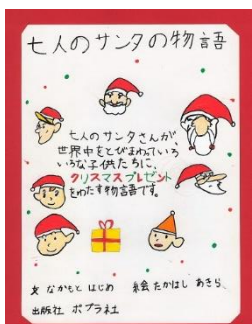 七人のサンタの物語
七人のサンタさんが、
世界中をとびまわっていろ
いろな子供たちに、
クリスマスプレゼント
をわたす物語です。
文 なかもと はじめ 絵 たかはし あきら
出版社 ポプラ社